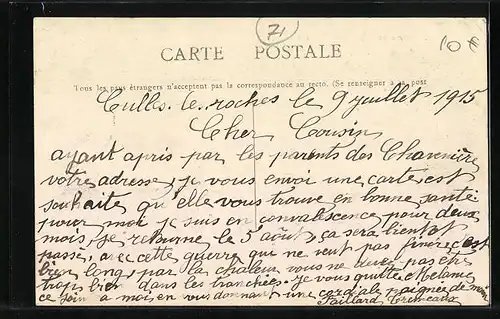 71
10€
CARTE POSTALE
Tous les pays étrangers n'acceptent pas la correspondance au recto. (Se renseigner à la post
Culles-les-roches le 9 juillet 1915
Cher Cousin
ayant apris par les parents des Chavennière
votre adresse, je vous envoi une carte, est
souhaite qu'elle vous trouve en bonne santé
pour moi je suis en convalescence pour deux
mois, je retourne le 5 août, ça sera bientot
passé, avec cette guerre qui ne veut pas finire c'est
bien long, par la chaleur vous ne devez pas être
trops bien dans les tranchées. Je vous quitte
ce soin a mois en vous donnant une cordiale poignée de main
Taillard